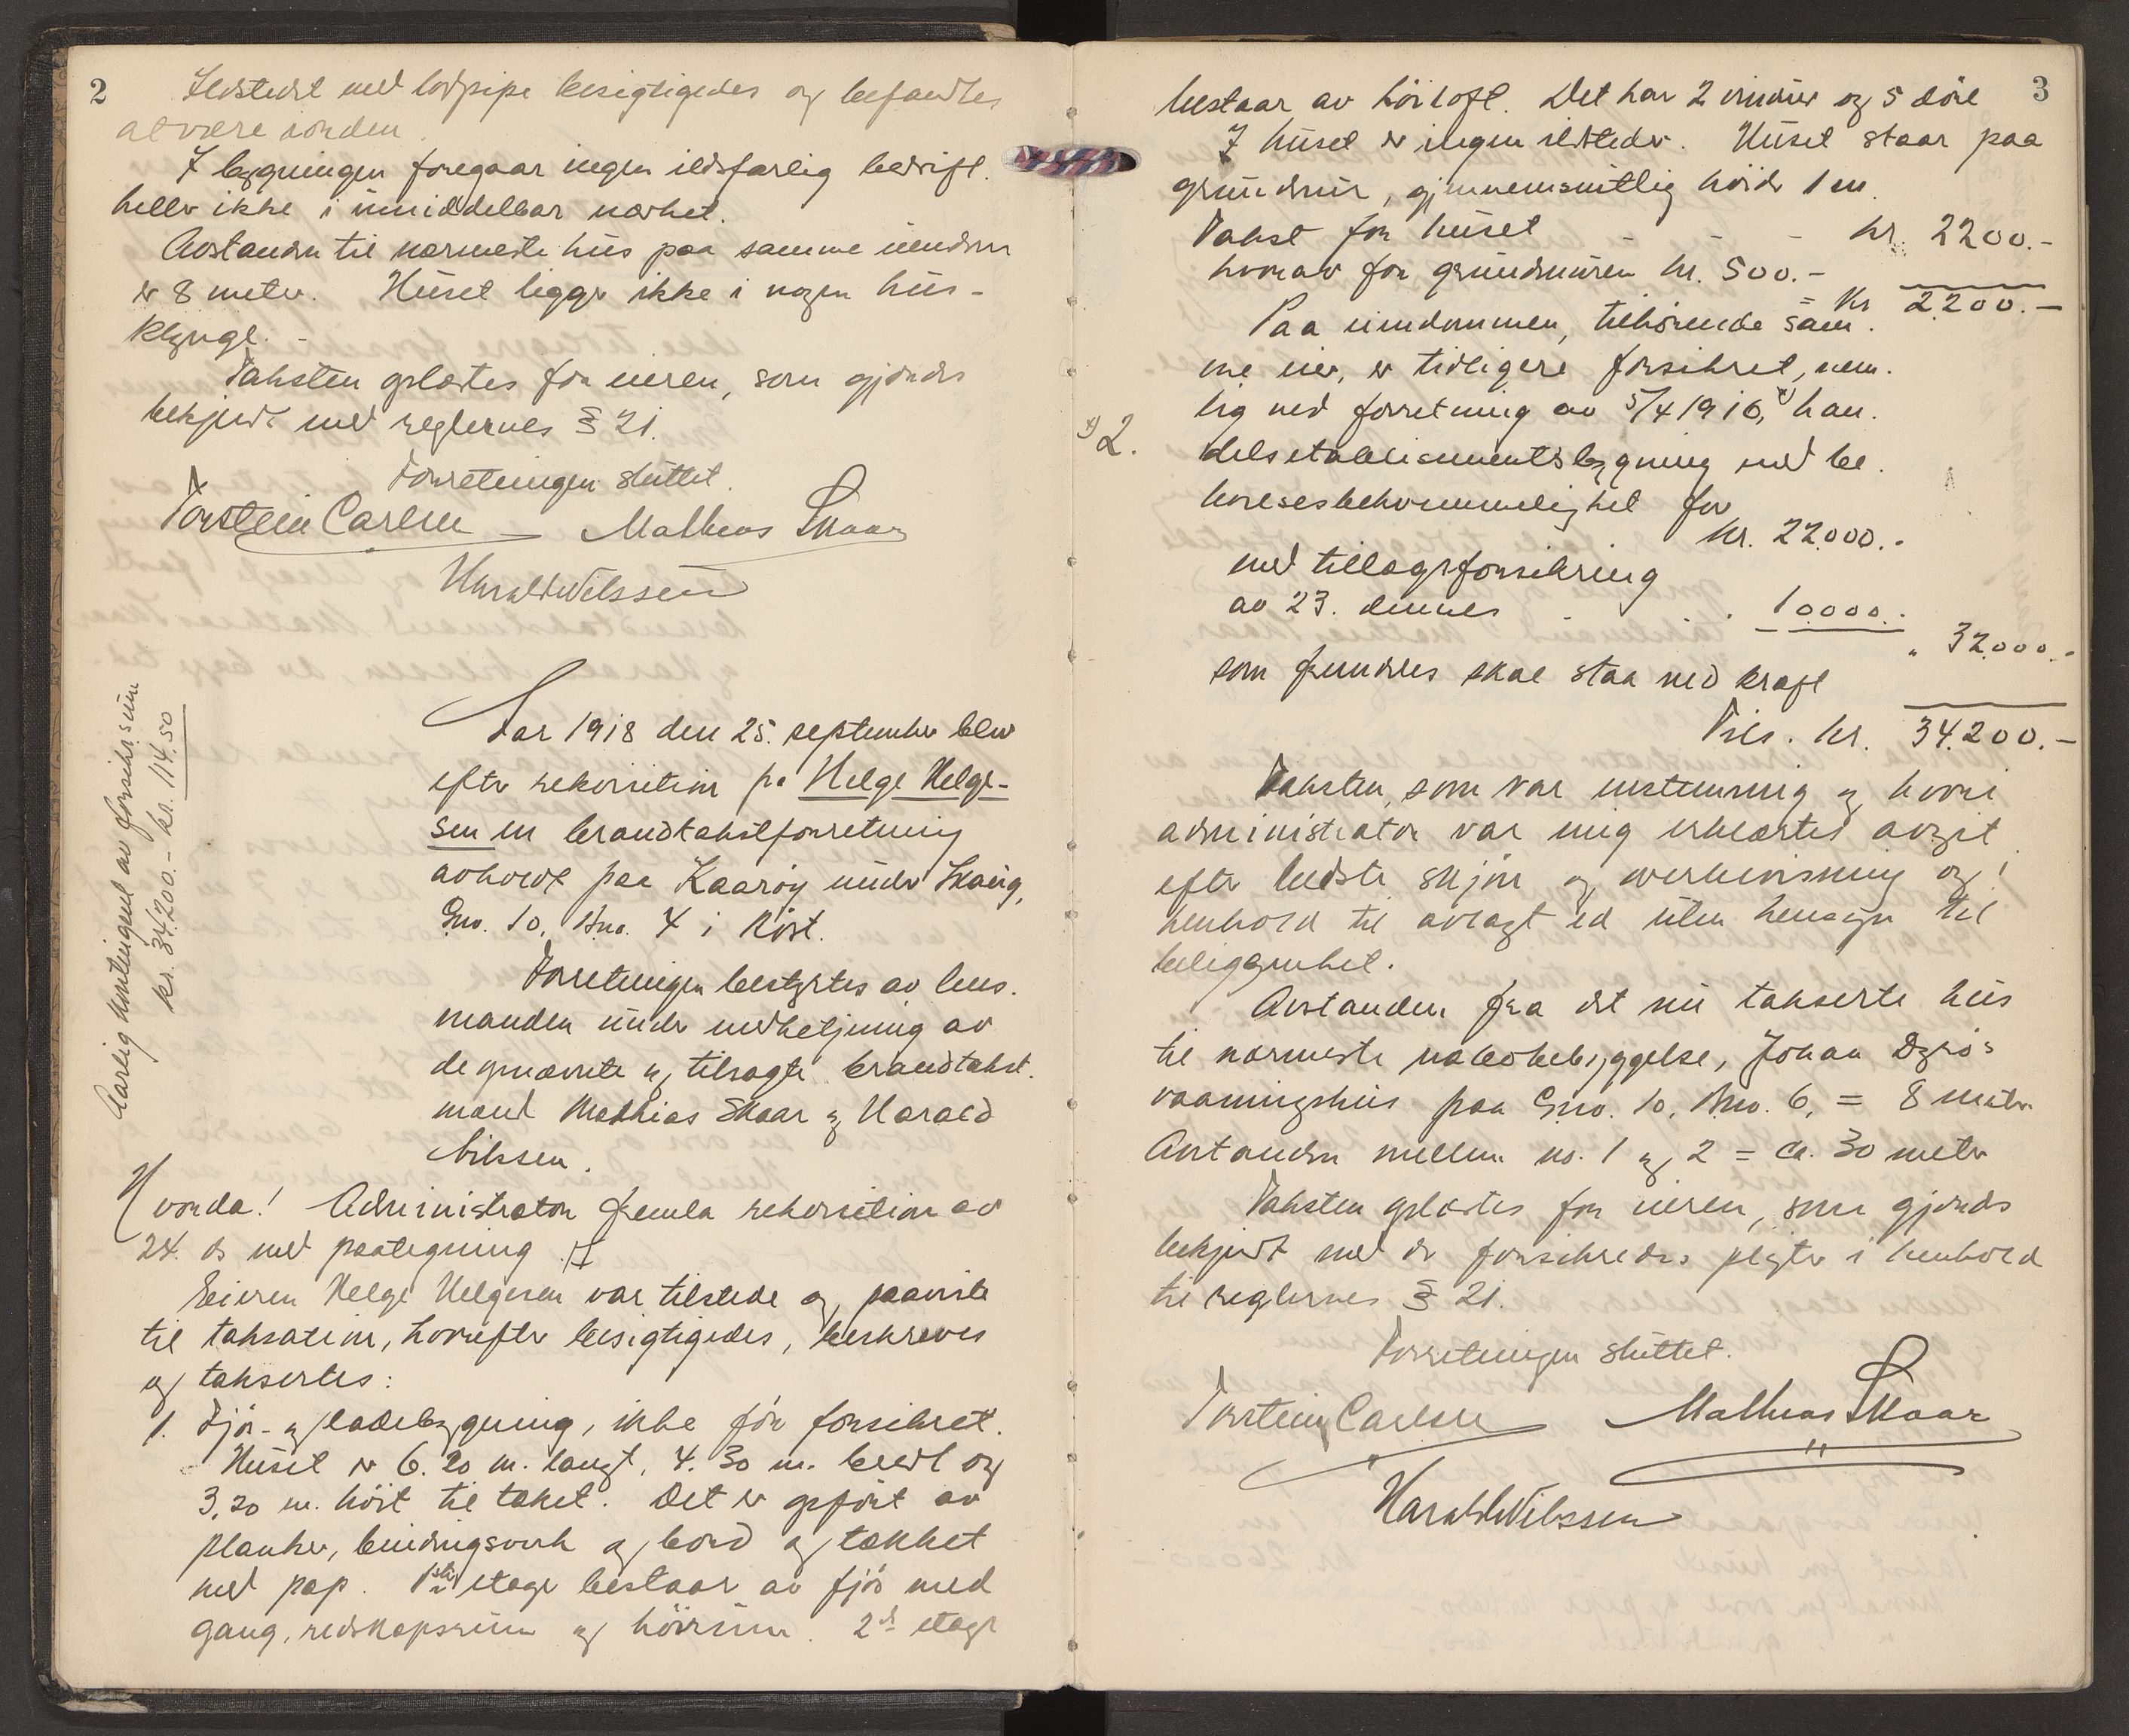 2
Ildstedet med lodpipe besigtigedes og befandtes
at være i orden.
I bygningen foregaar ingen ildsfarlig bedrift.
heller ikke i umiddelbar nærhet.
Avstanden til nærmeste hus paa samme eiendom
er 8 meter. Huset ligger ikke i nogen hus-
klynge. -
Taksten oplæstes for eieren, som gjordes
bekjendt med reglernes § 21.
Forretningen sluttet.
Torstein Carlsen Mathias Skaar
Harald Nilssen
Aarlig kontingent av forsikr.sum
kr. 34200.- kr. 114.50
Aar 1918 den 25. september blev
efter rekvisition fra Helge Helge-
sen en brandtakstforretning
avholdt paa Kaarøy under Skaug,
Gno. 10, Bno. 4 i Röst.
Forretningen bestyrtes av lens-
manden under medhetjening av
de opnævnte og tilsagte brandtakst-
mænd Mathias Skaar og Harald
Nilssen.
Hvorda! Administrator fremla rekvisition av
24. ds med paategning
Eieren Helge Helgesen var tilstede og paaviste
til taksation, hvorefter besigtigedes, beskreves
og taksertes:
1. Fjös- og ladebygning, ikke för forsikret.
Huset er 6.20 m. langt, 4.30 m. bredt og
3,20 m. höit til taket. Det er opfört av
planker, bindingsverk og bord og tækket
med pap. 1ste etage bestaar av fjös med
gang, redskapsrum og höirum. 2de etage
3
bestaar av höiloft. Det har 2 vinduer og 5 döre
I huset er ingen ildsteder. Huset staar paa
grundmur, gjennemsnitlig höide 1 m.
Takst for huset - - - kr. 2200.-
hvorav for grundmuren kr. 500.-
= Kr 2200.-
Paa eiendommen, tilhörende sam-
me eier, er tidligere forsikret, nem-
lig ved forretning av 5/4 1916, x) han-
x) 2.
delsetablissementsbygning med be-
boelsesbekvemmelighet for
kr. 22000.-
med tillægsforsikring
av 23. dennes - - 10000.-
" 32000.-
som fremdeles skal staa ved kraft
Tils. kr. 34.200.-
Taksten, som var enstemmig og hvori
administrator var enig erklærtes avgit
efter bedste skjön og overbevisning og i
henhold til avlagt ed uten hensyn til
beliggenhet.
Avstanden fra det nu takserte hus
til nærmeste nabobebyggelse, Johan Dyrö's
vaaningshus paa Gno. 10, Bno. 6, = 8 meter
Avstanden mellem no. 1 og 2 = ca. 30 meter
Taksten oplæstes for eieren, som gjordes
bekjendt med de forsikredes pligter i henhold
til reglernes § 21.
Forretningen sluttet.
Torstein Carlsen Mathias Skaar
Harald Nilssen